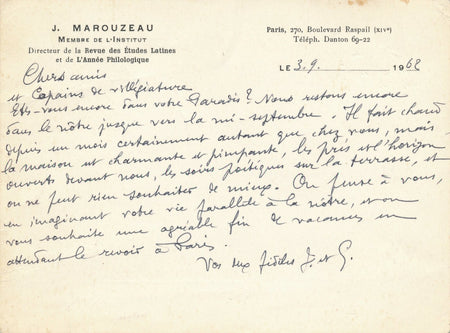 J. MAROUZEAU
MEMBRE DE L'INSTITUT
Directeur de la Revue des Études Latines
et de L'Année Philologique
Paris, 270, Boulevard Raspail (XIVe)
Téléph. Danton 69-22
LE 3.9. 1962
Chers amis
et Copains de villégiature
Etes-vous encore dans votre Paradis? Nous restons encore
dans le nôtre jusque vers la mi-septembre. Il fait chaud
depuis un mois certainement autant que chez vous, mais
la maison est charmante et pimpante, les prés et l'horizon
ouverts devant nous, les soirs poétiques sur la terrasse, et
on ne peut rien souhaiter de mieux. On pense à vous,
en imaginant votre vie parallèle à la nôtre, et on
vous souhaite une agréable fin de vacances en
attendant le revoir à Paris.
Vos deux fidèles J. et G.